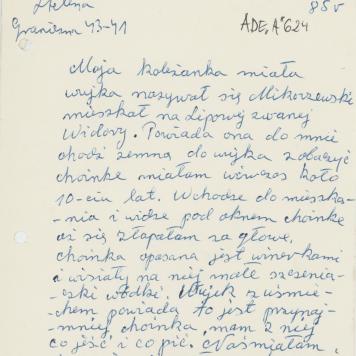 Helena
85 v
Graniczna 43-41
ADE, A 624
Moja koleżanka miała
wujka nazywał się Mikorzewski
mieszkał na Lipowej zwanej
Widory. Powiada ona do mnie
chodź zemną do wujka zobaczyć
choinkę miałam wówczas koło
10-ciu lat. Wchodzę do mieszka-
nia i widzę pod oknem choinkę
aż się złapałam za głowę,
choinka opasana jest
i wisiały na niej małe
wódki. Wujek z uśmie-
chem powiada to jest przynaj-
mniej choinka, mam z niej
co jeść i co pić.